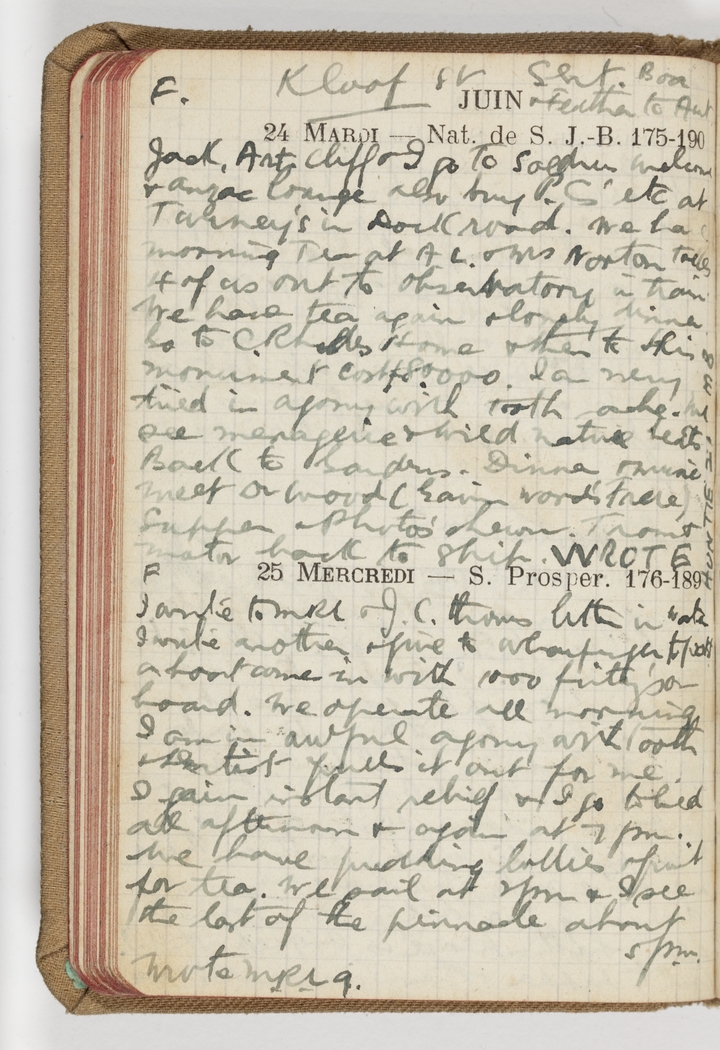 F. Kloof St Sent. Boa
JUIN & Feather to Aut
24 MARDI — Nat. de S. J.-B. 175-190
Jack, Art, Cliff & I go to Soldiers welcome
& anzac lounge also buy P.C's etc at
in Dock road. We ha
morning Tea at A L. & Mrs Norton takes
4 of us out to Observatory in train
We have tea again & lovely dinner
to C Rhodes Home & then to his
monument cost £80000. I am very
tired in agony with tooth ache. We
see menagerie & wild nature
Back to Gardens. Dinner & music
meet Dr Wood (
Supper & Photos shewn. Tram &
motor back to Ship. WROTE
AUNTIE
25 MERCREDI — S. Prosper. 176-189
F
I write to & J. C. throws letter in water
I write another & give to to post
a boat come in with 1000 on
board. We operate all morning
I am in awful agony with tooth
& dentist pulls it out for me.
I gain instant relief & I go to bed
all afternoon & again at 7 pm.
We have pudding lollies & fruit
for tea. We sail at 2pm & I see
the last of the pinnacle about
5 pm.
wrote 9.